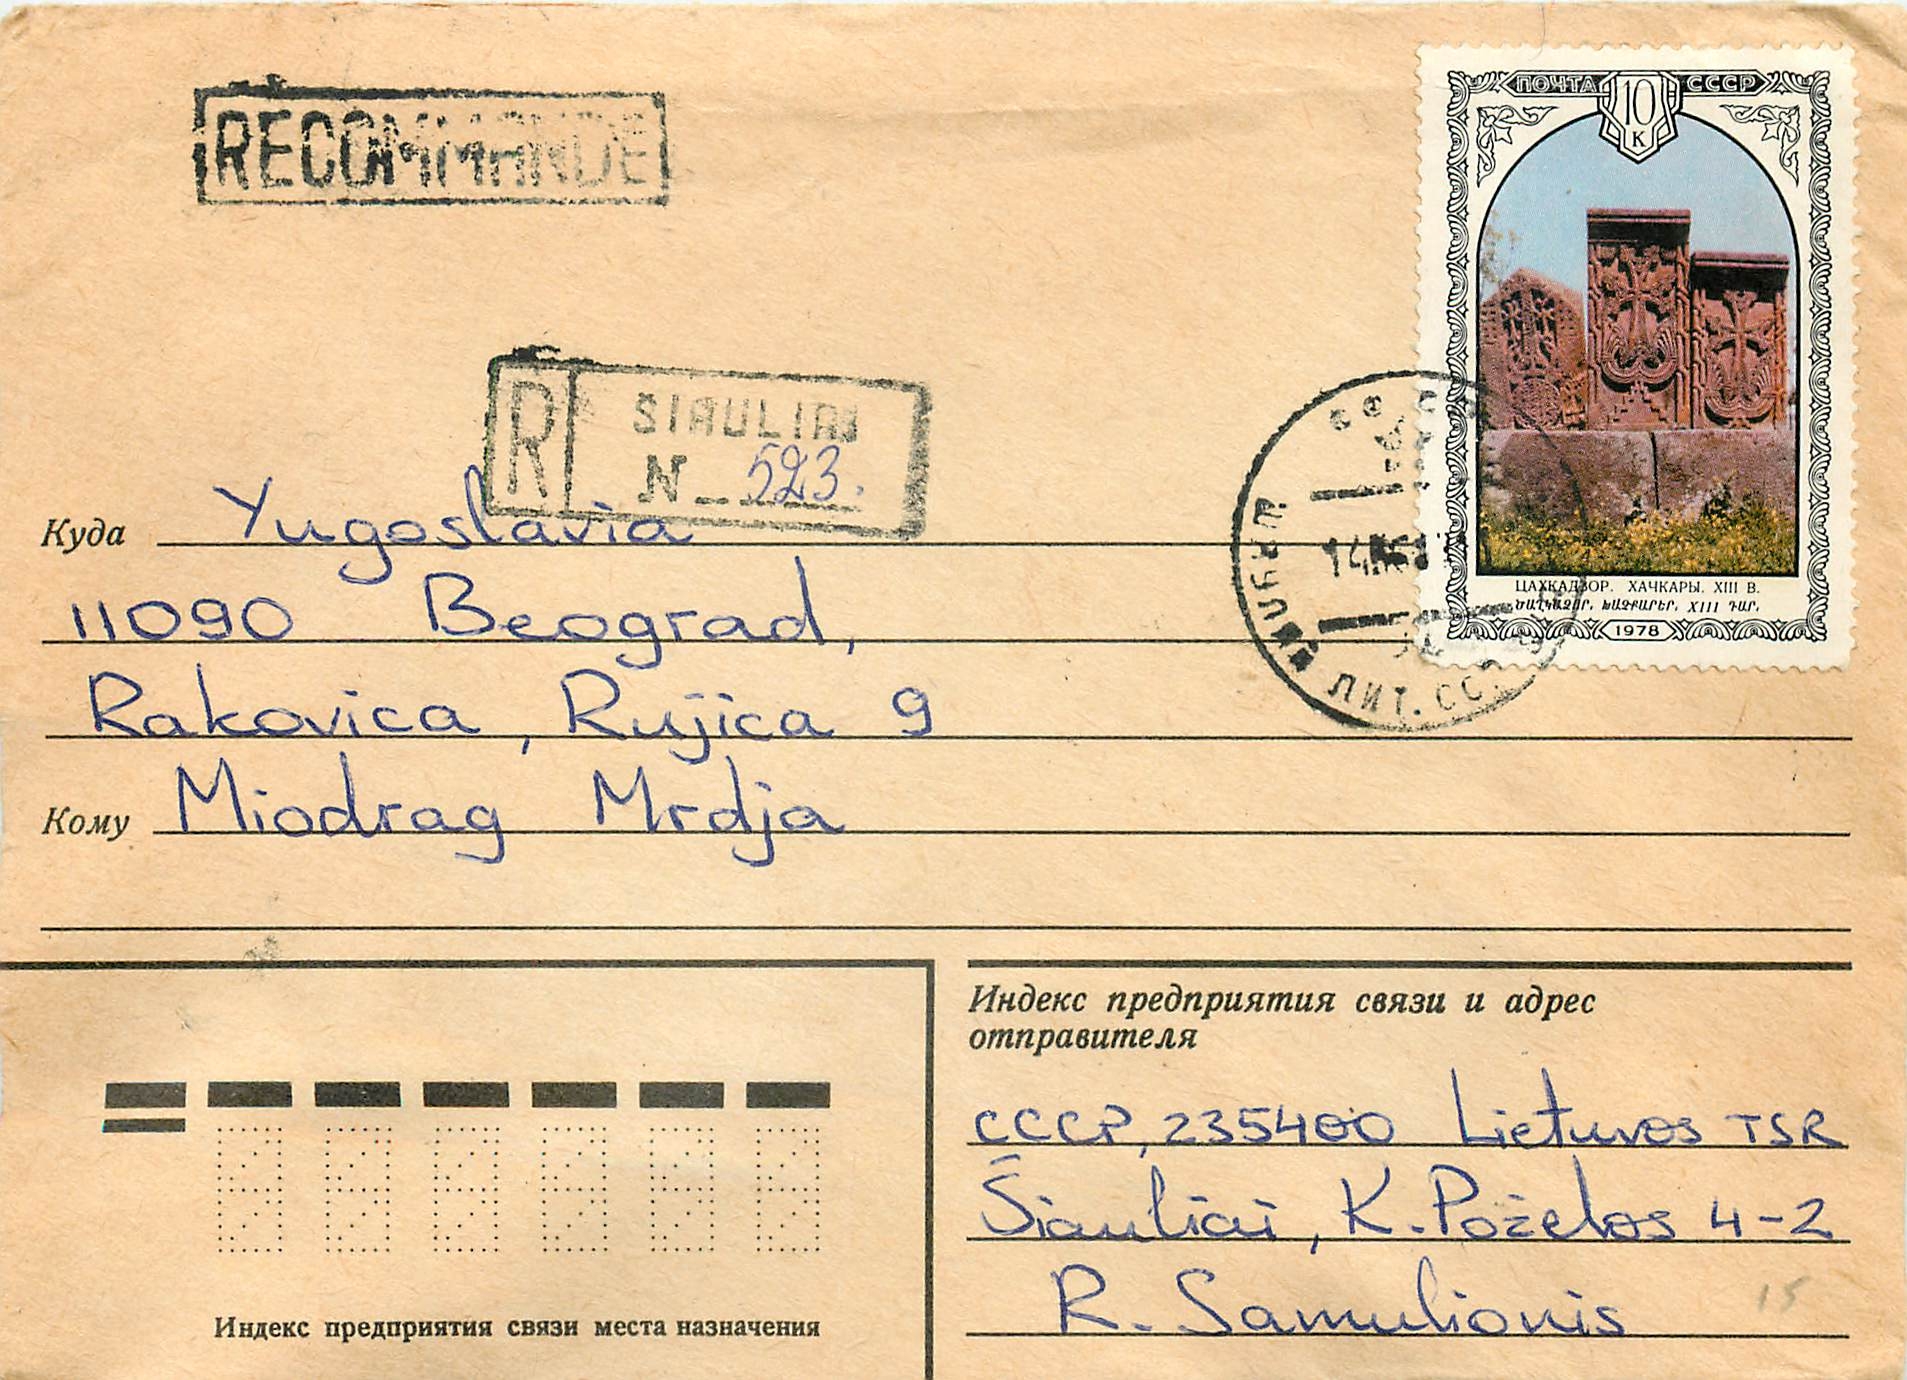 RECOMMANDE
ПОЧТА СССР
10
К
R
SIAULIAI
N 523.
Куда Yugoslavia
11090 Beograd,
Rakovica, Rujica 9
Кому Miodrag Mrdja
ЦАХКАДЗОР. ХАЧКАРЫ. XIII В.
ԾԱՂԿԱՁՈՐ. ԽԱՉՔԱՐԵՐ. XIII ԴԱՐ.
1978
ЛИТ. ССР
Индекс предприятия связи и адрес
отправителя
СССР, 235400 Lietuvos TSR
Šiauliai, K. Poželos 4-2
R. Samulionis
15
Индекс предприятия связи места назначения